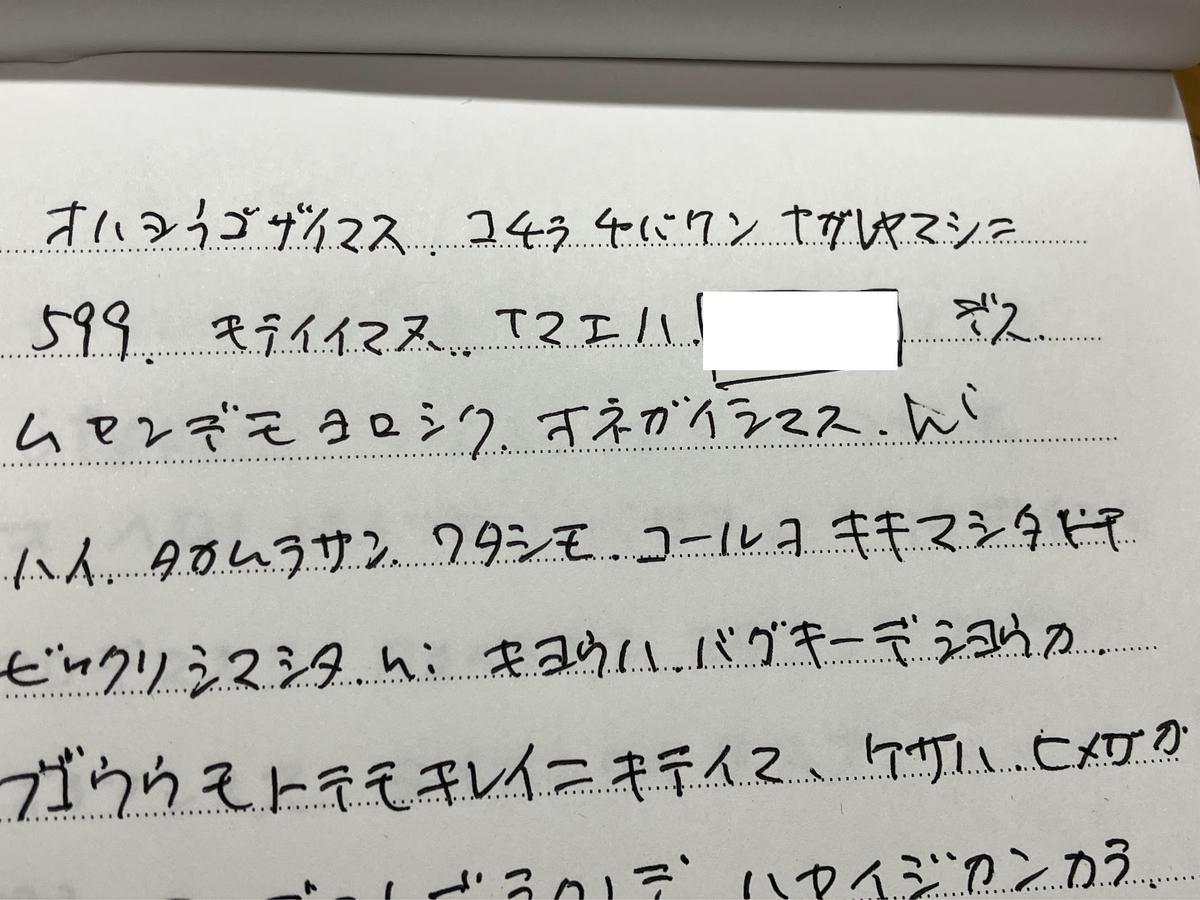 オハヨウゴザイマス. コチラ チバケン ナガレヤマシニ
599. モテイイマス.. ナマエハ. デス.
ムセンデモ ヨロシク. オネガイシマス. hi
ハイ. タカムラサン. ワタシモ. コールヲ キキマシタ
ビックリシマシタ. hi キヨウハ. バグキーデショウカ.
フゴウウモトテモキレイニキテイマ、ケサハ. ヒメザカ
ハヤイジカンカラ.